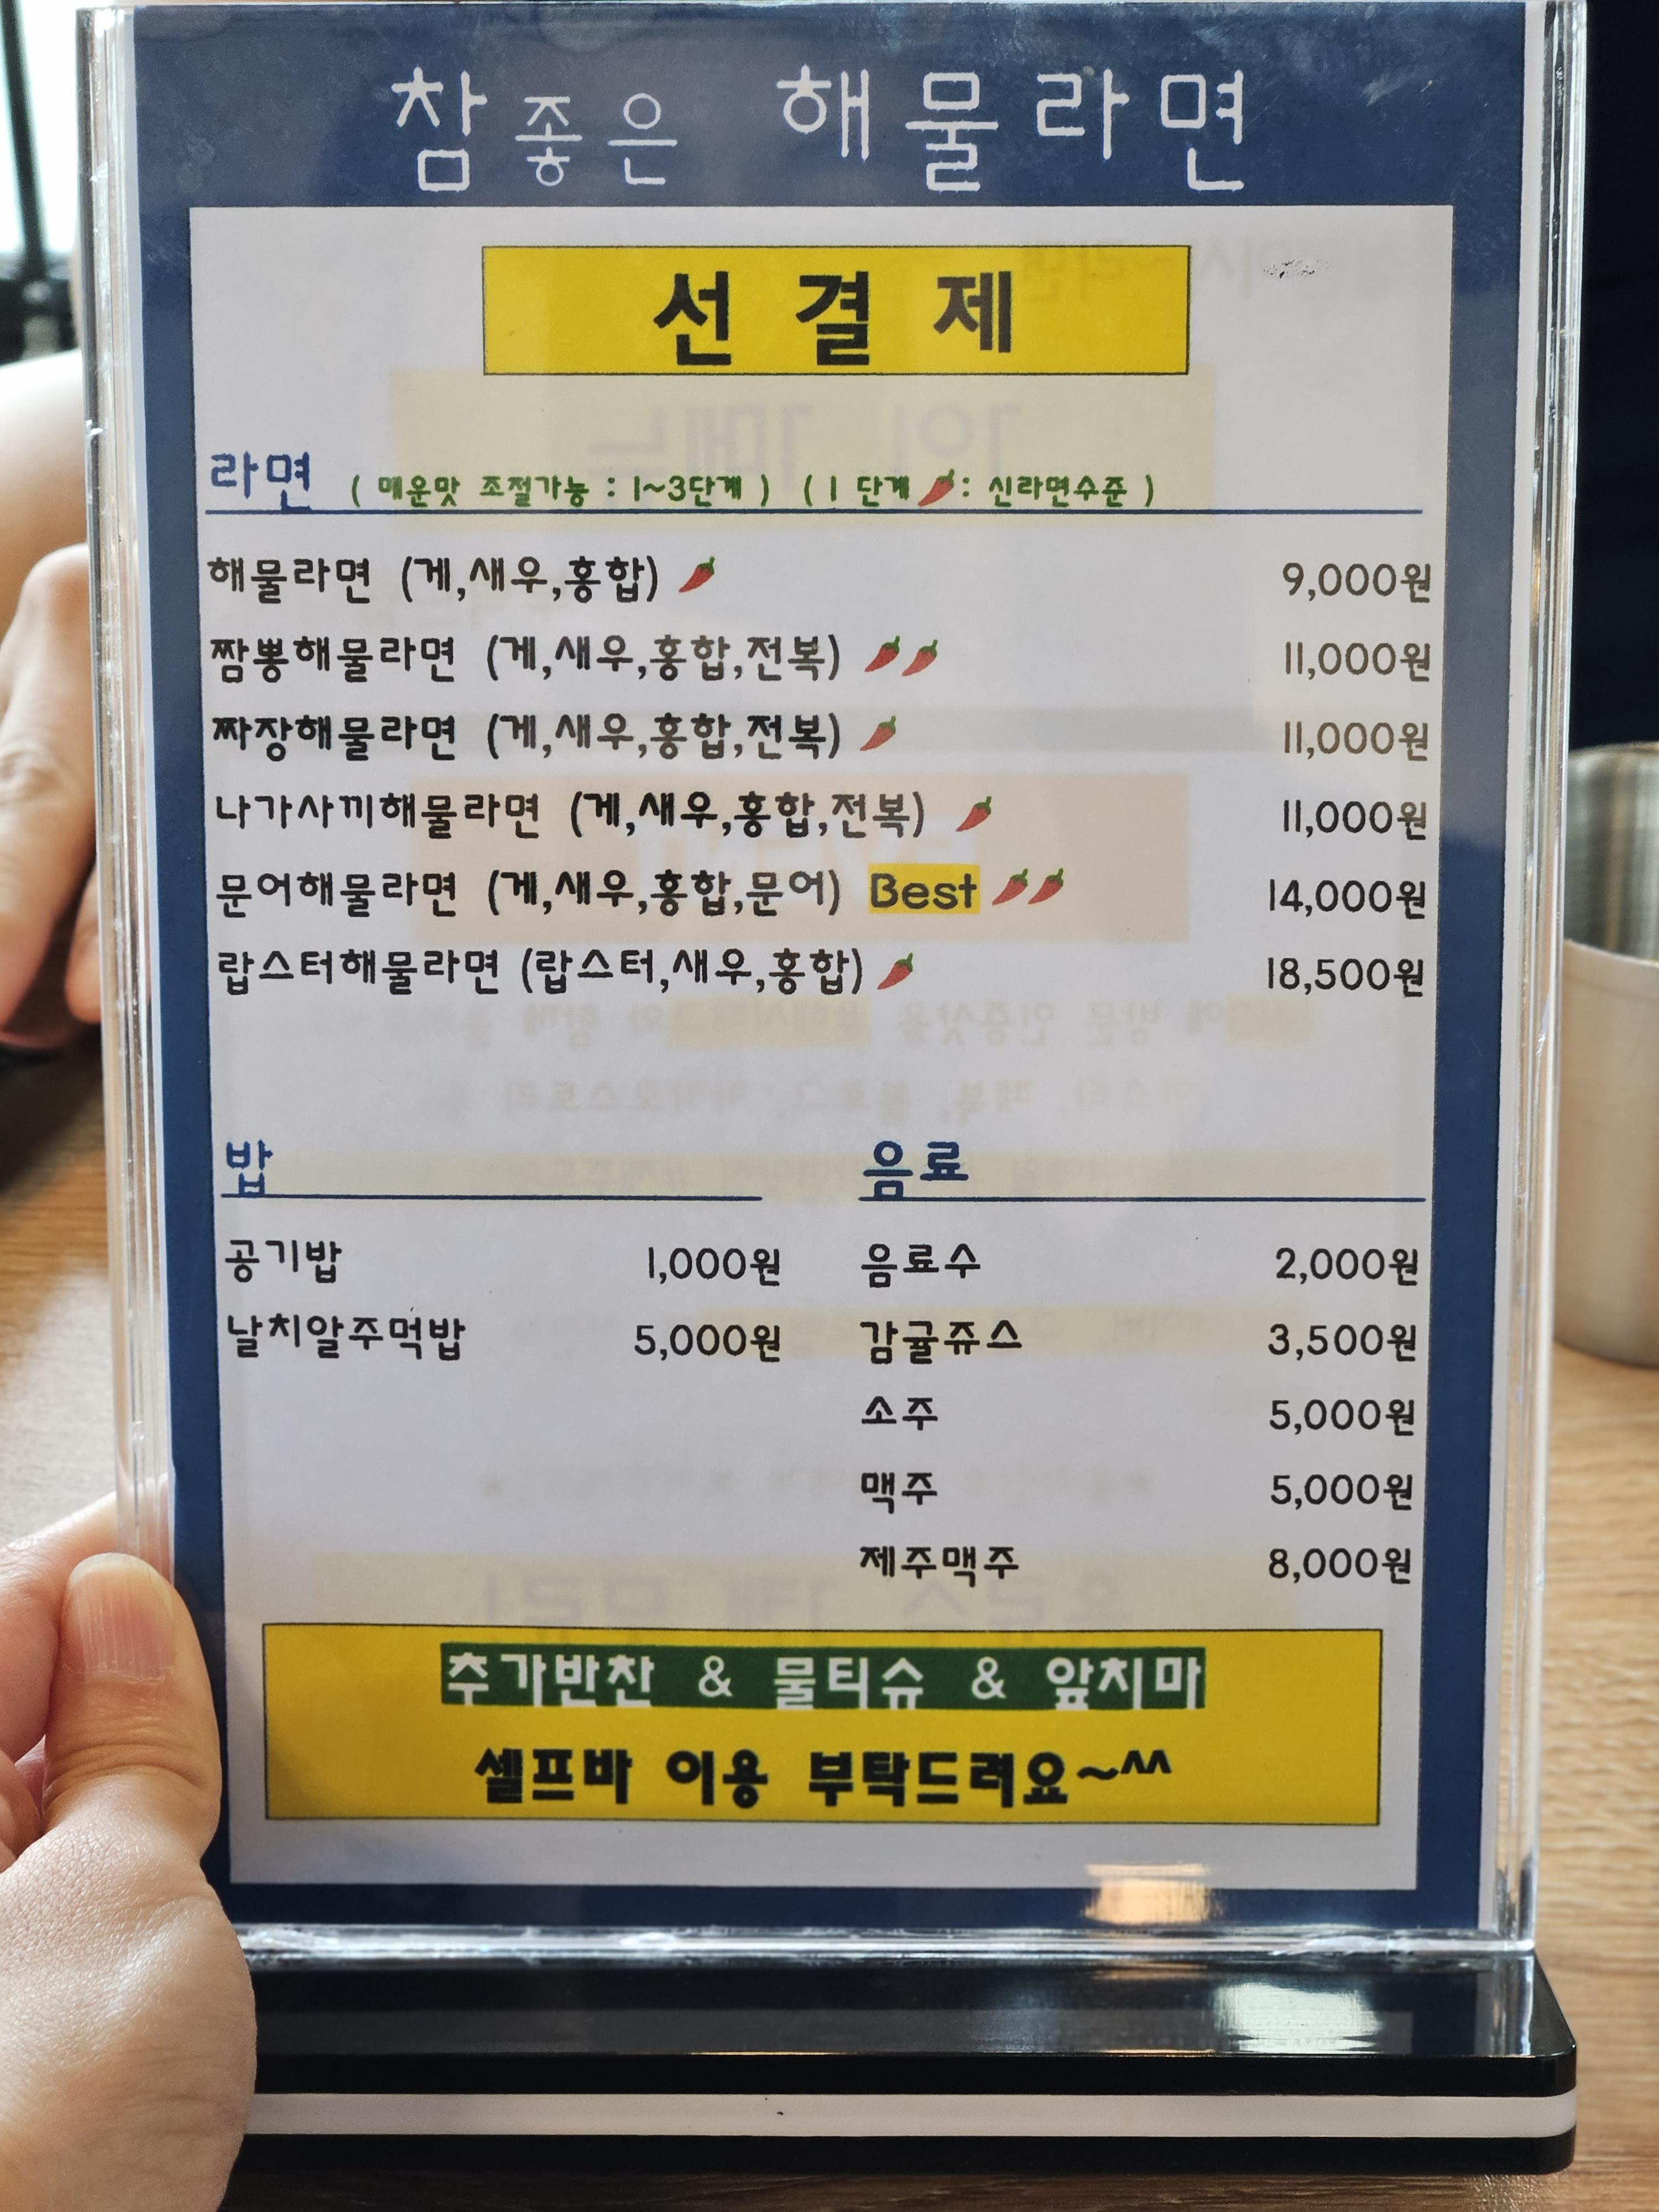 참좋은 해물라면
선결제
라면 ( 매운맛 조절가능 : 1~3단계 ) ( 1 단계🌶: 신라면수준 )
해물라면 (게,새우,홍합) 🌶 9,000원
짬뽕해물라면 (게,새우,홍합,전복) 🌶🌶 11,000원
짜장해물라면 (게,새우,홍합,전복) 🌶 11,000원
나가사끼해물라면 (게,새우,홍합,전복) 🌶 11,000원
문어해물라면 (게,새우,홍합,문어) Best 🌶🌶 14,000원
랍스터해물라면 (랍스터,새우,홍합) 🌶 18,500원
밥
공기밥 1,000원
날치알주먹밥 5,000원
음료
음료수 2,000원
감귤쥬스 3,500원
소주 5,000원
맥주 5,000원
제주맥주 8,000원
추가반찬 & 물티슈 & 앞치마
셀프바 이용 부탁드려요~^^